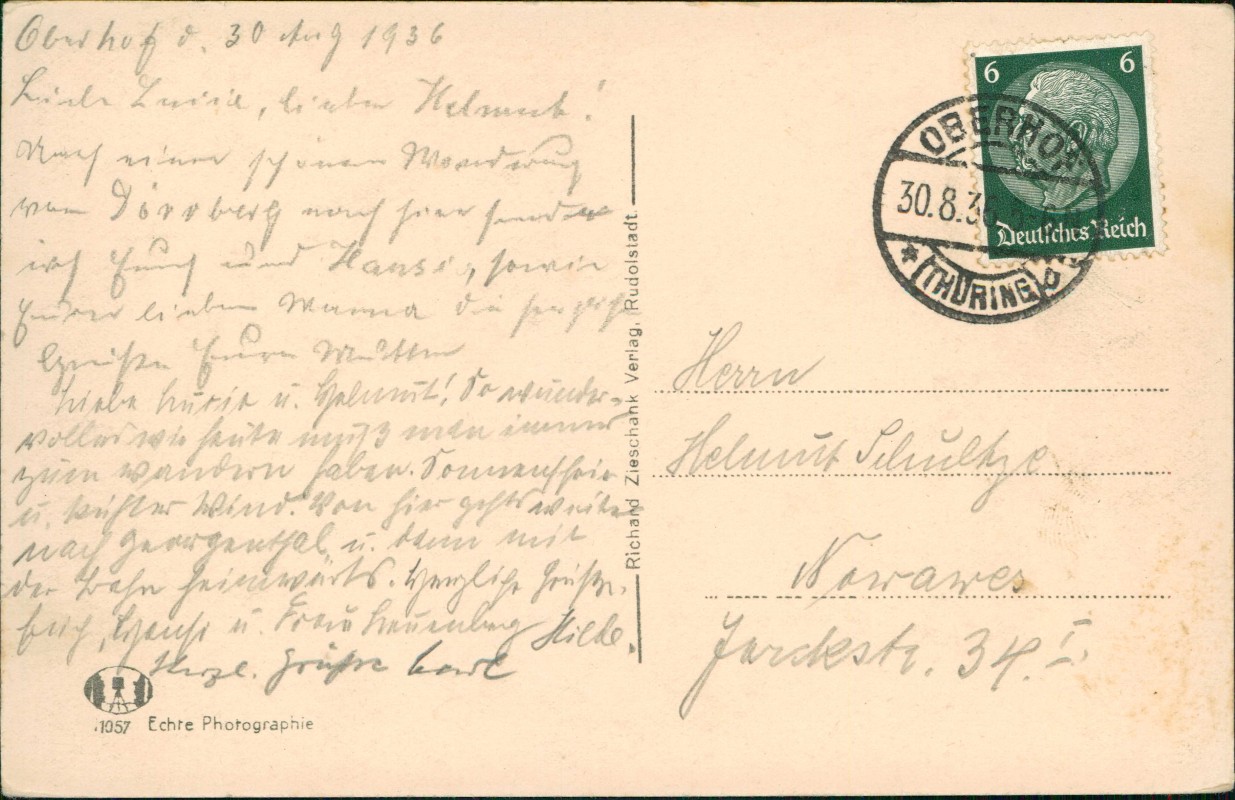 Oberhof d. 30 Aug 1936
Liebe Luise, lieber Helmut!
Nach einer schönen Wanderung
vom Dörrberg nach hier senden
wir Euch und Hansi, sowie
Eurer lieben Mama die herzlichst
Grüße Eure Mutter
Liebe Luise u. Helmut! So wunder-
volles wie heute muß man immer
zum wandern haben. Sonnenschein
u. kühler Wind. Von hier gehts weiter
nach Georgenthal u. dann mit
der Bahn heimwärts. Herzliche Grüße,
Euch, Hansi u. Frau Hilde.
Herzl. Grüße
1957 Echte Photographie
Richard Zieschank Verlag, Rudolstadt.
6 6
Deutsches Reich
OBERHOF
30.8.36
(THÜRING)
b
Herrn
Helmut Schultze
Nowawes
Yorckstr. 34 I.